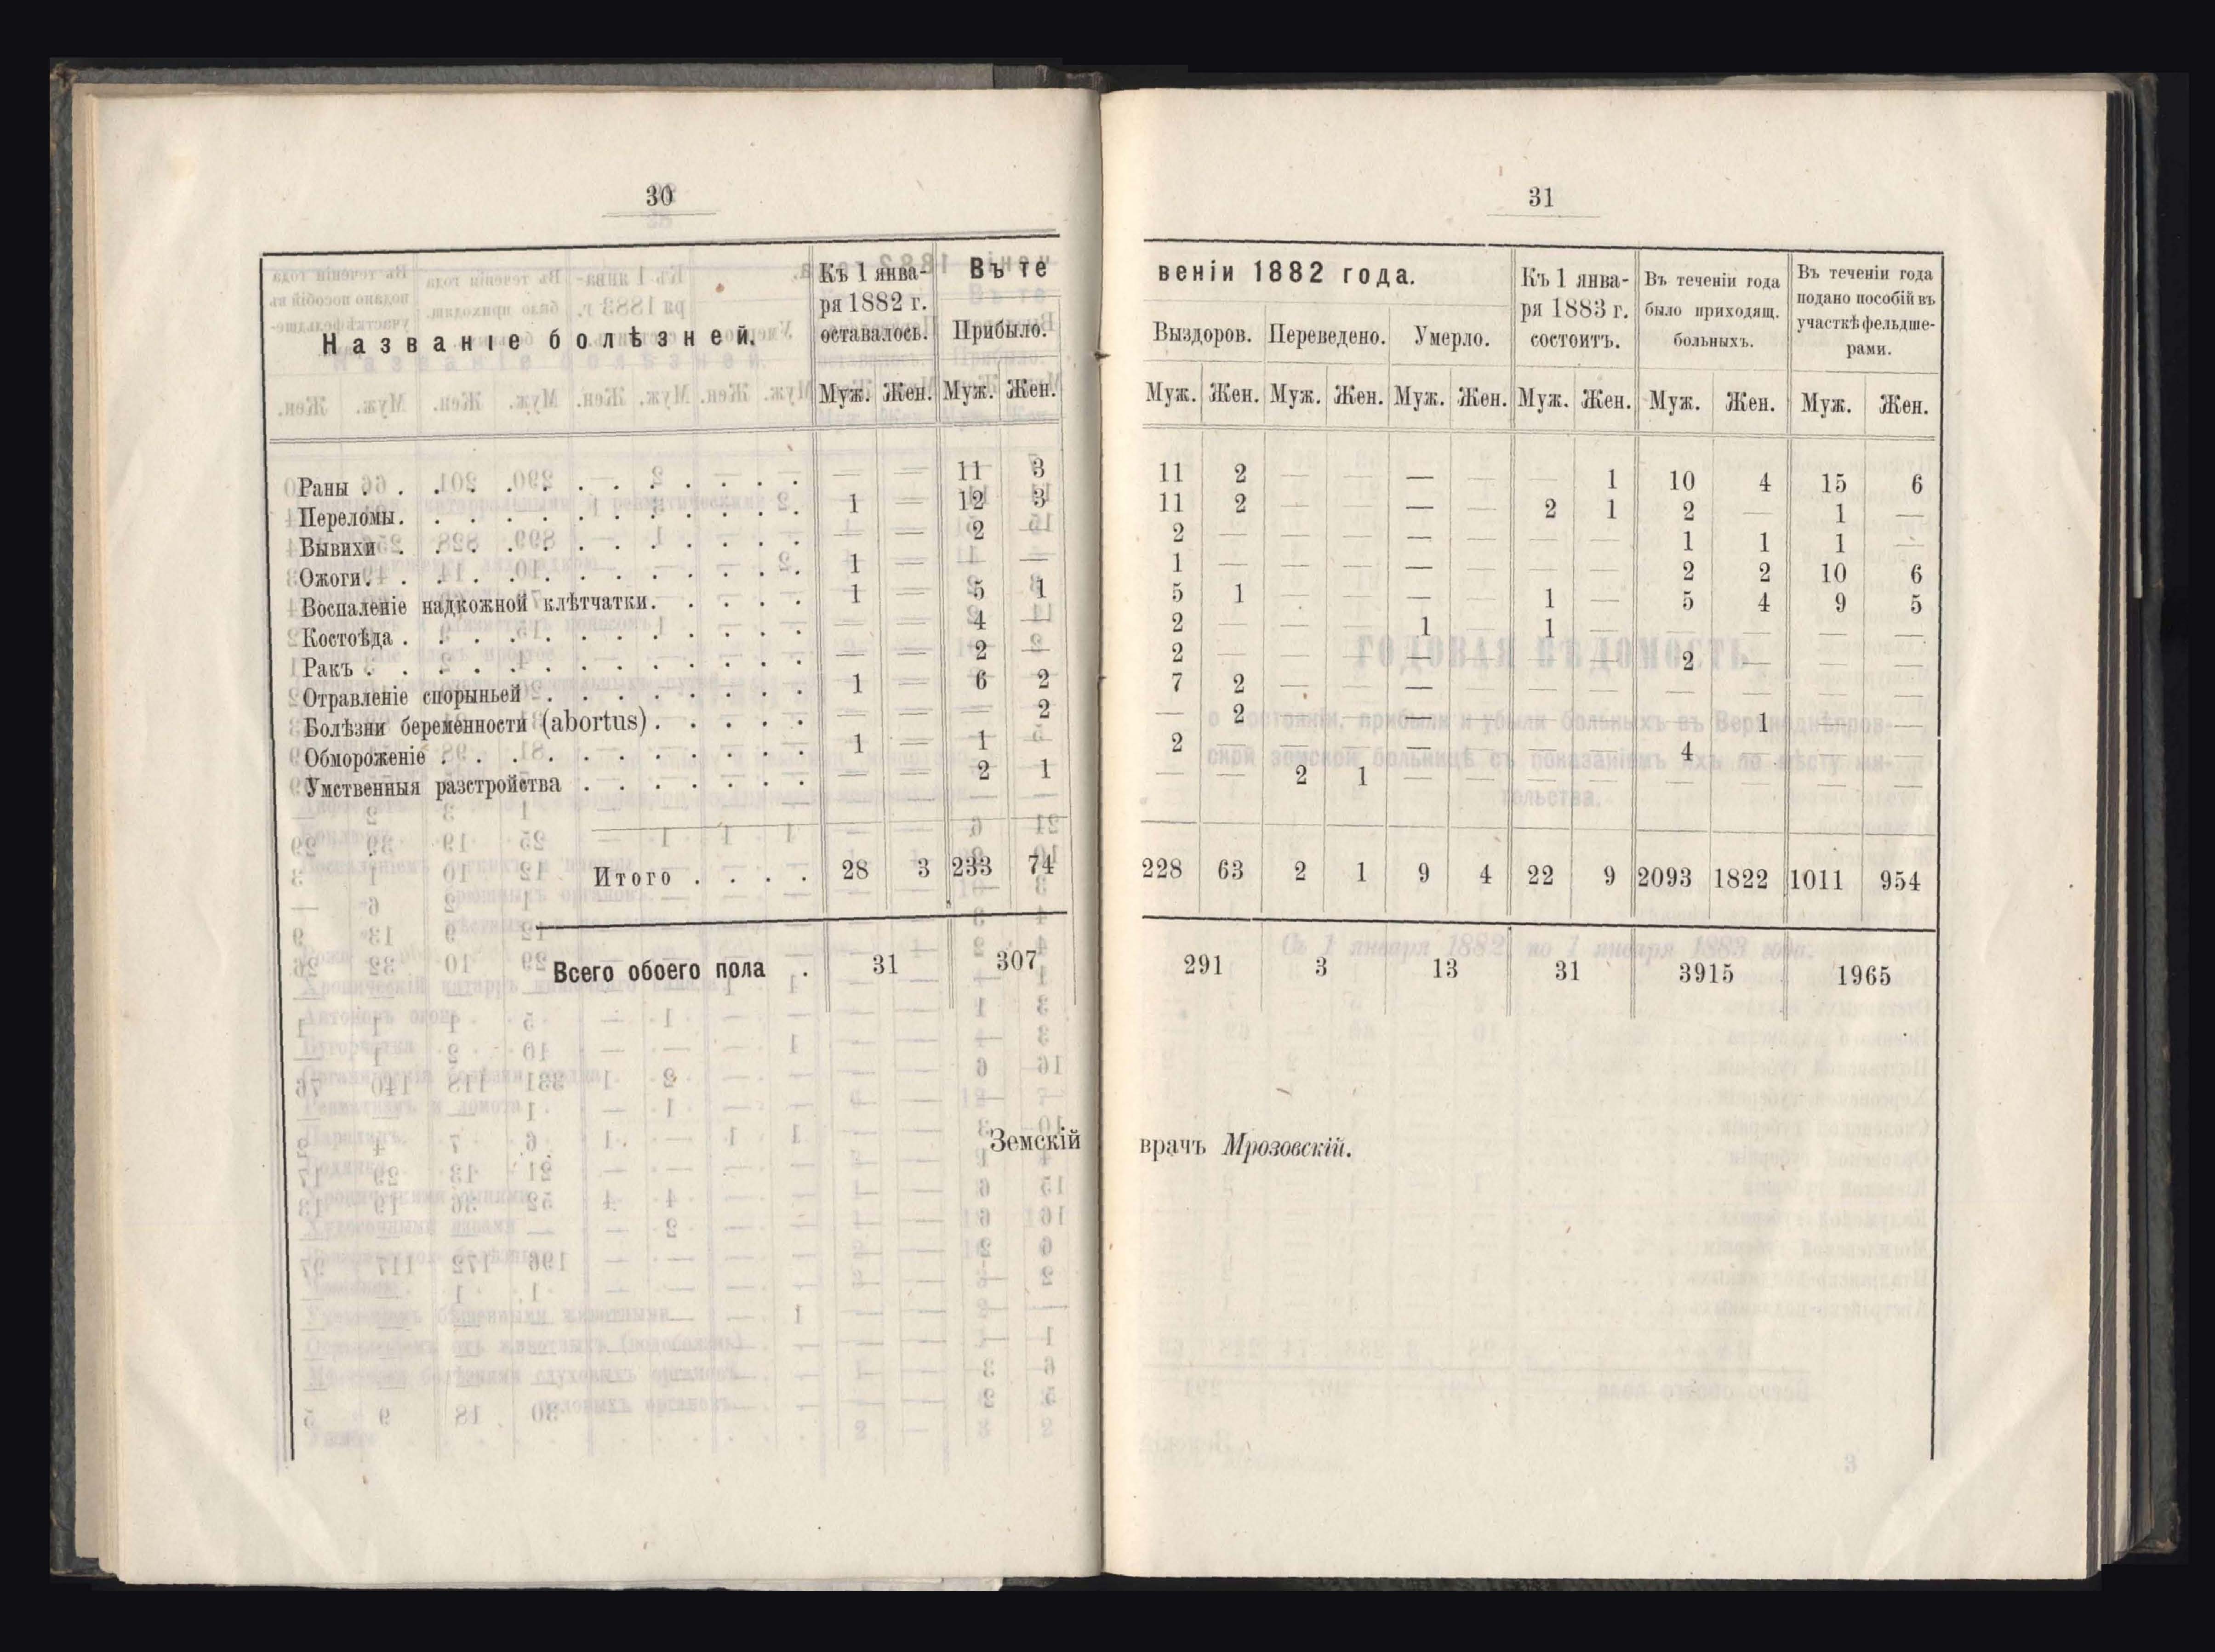 30
Названіе болѣзней.
Къ 1 янва-
ря 1882 г.
оставалось.
Въ те
Прибыло.
Муж. Жен. Муж. Жен.
Раны . . . . . . . . . . . . — — 11 3
Переломы. . . . . . . . . . . 1 — 12 3
Вывихи . . . . . . . . . . . — — 2 —
Ожоги. . . . . . . . . . . . 1 — — —
Воспаленіе надкожной клѣтчатки. . . . . 1 — 5 1
Костоѣда . . . . . . . . . . . — — 4 —
Ракъ . . . . . . . . . . . . — — 2 —
Отравленіе спорыньей . . . . . . . . 1 — 6 2
Болѣзни беременности (abortus). . . . . — — — 2
Обмороженіе . . . . . . . . . . 1 — 1 —
Умственныя разстройства . . . . . . . — — 2 1
Итого . . . . 28 3 233 74
Всего обоего пола . 31 307
Земскій
31
веніи 1882 года.
Выздоров. Переведено. Умерло.
Къ 1 янва-
ря 1883 г.
состоитъ.
Въ теченіи года
было приходящ.
больныхъ.
Въ теченіи года
подано пособій въ
участкѣ фельдше-
рами.
Муж. Жен. Муж. Жен. Муж. Жен. Муж. Жен. Муж. Жен. Муж. Жен.
11 2 — — — — — 1 10 4 15 6
11 2 — — — — 2 1 2 — 1 —
2 — — — — — — — 1 1 1 —
1 — — — — — — — 2 2 10 6
5 1 — — — — 1 — 5 4 9 5
2 — — — 1 — 1 — — — — —
2 — — — — — — — 2 — — —
7 2 — — — — — — — — — —
— 2 — — — — — — — 1 — —
2 — — — — — — — 4 — — —
— — 2 1 — — — — — — — —
228 63 2 1 9 4 22 9 2093 1822 1011 954
291 3 13 31 3915 1965
врачъ Мрозовскій.